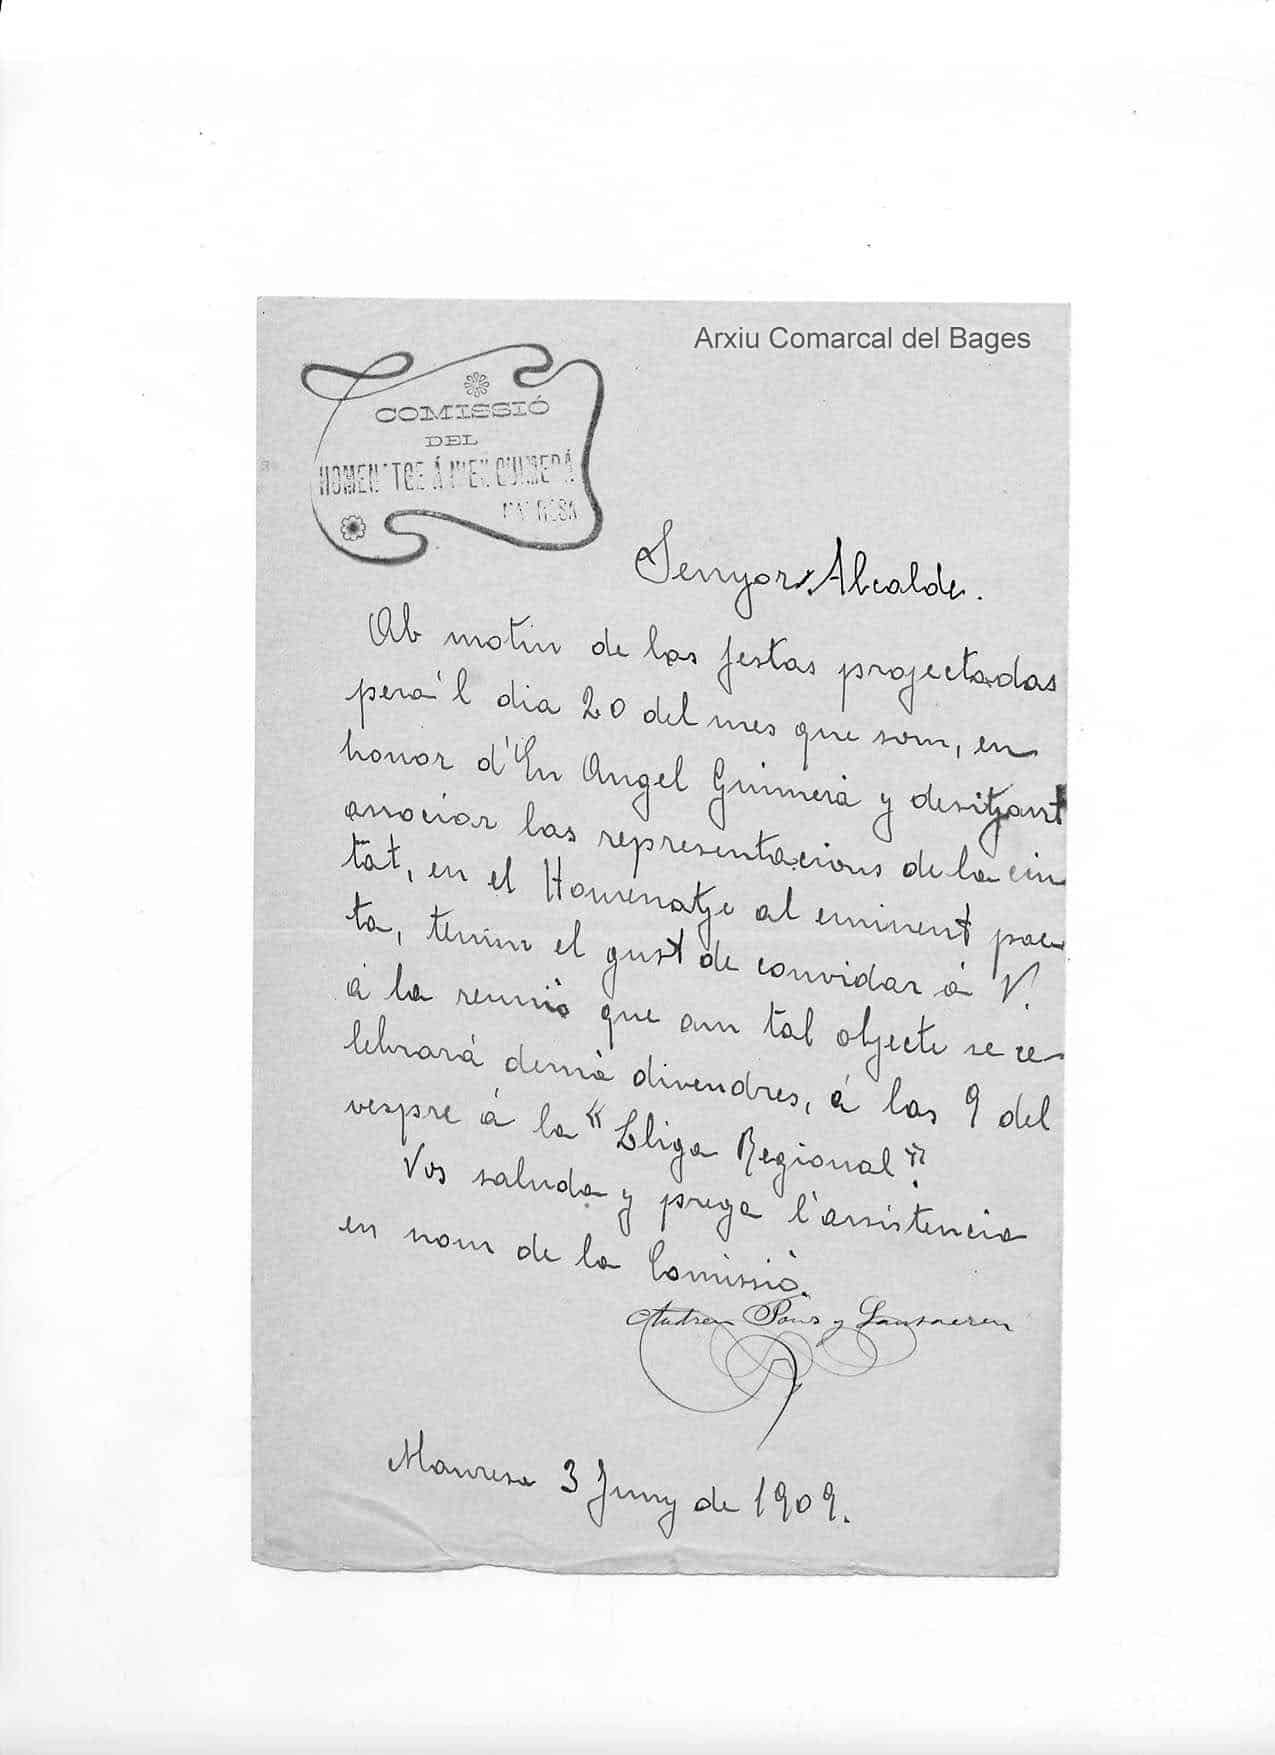 Arxiu Comarcal del Bages
COMISSIÓ
DEL
HOMENATGE Á N'EN GUIMERÁ
MANRESA
Senyor Alcalde.
Ab motiu de las festas projectadas
pera'l dia 20 del mes que som, en
honor d'En Angel Guimerá y desitjant
associar las representacions de la ciu
tat, en el Homenatje al eminent poe-
ta, tenim el gust de convidar á V.
á la reunió que am tal objecte se ce-
lebrará demá divendres, á las 9 del
vespre á la "Lliga Regional".
Vos saluda y prega l'assistencia
en nom de la Comissió.
Andreu Pons y
Manresa 3 Juny de 1909.